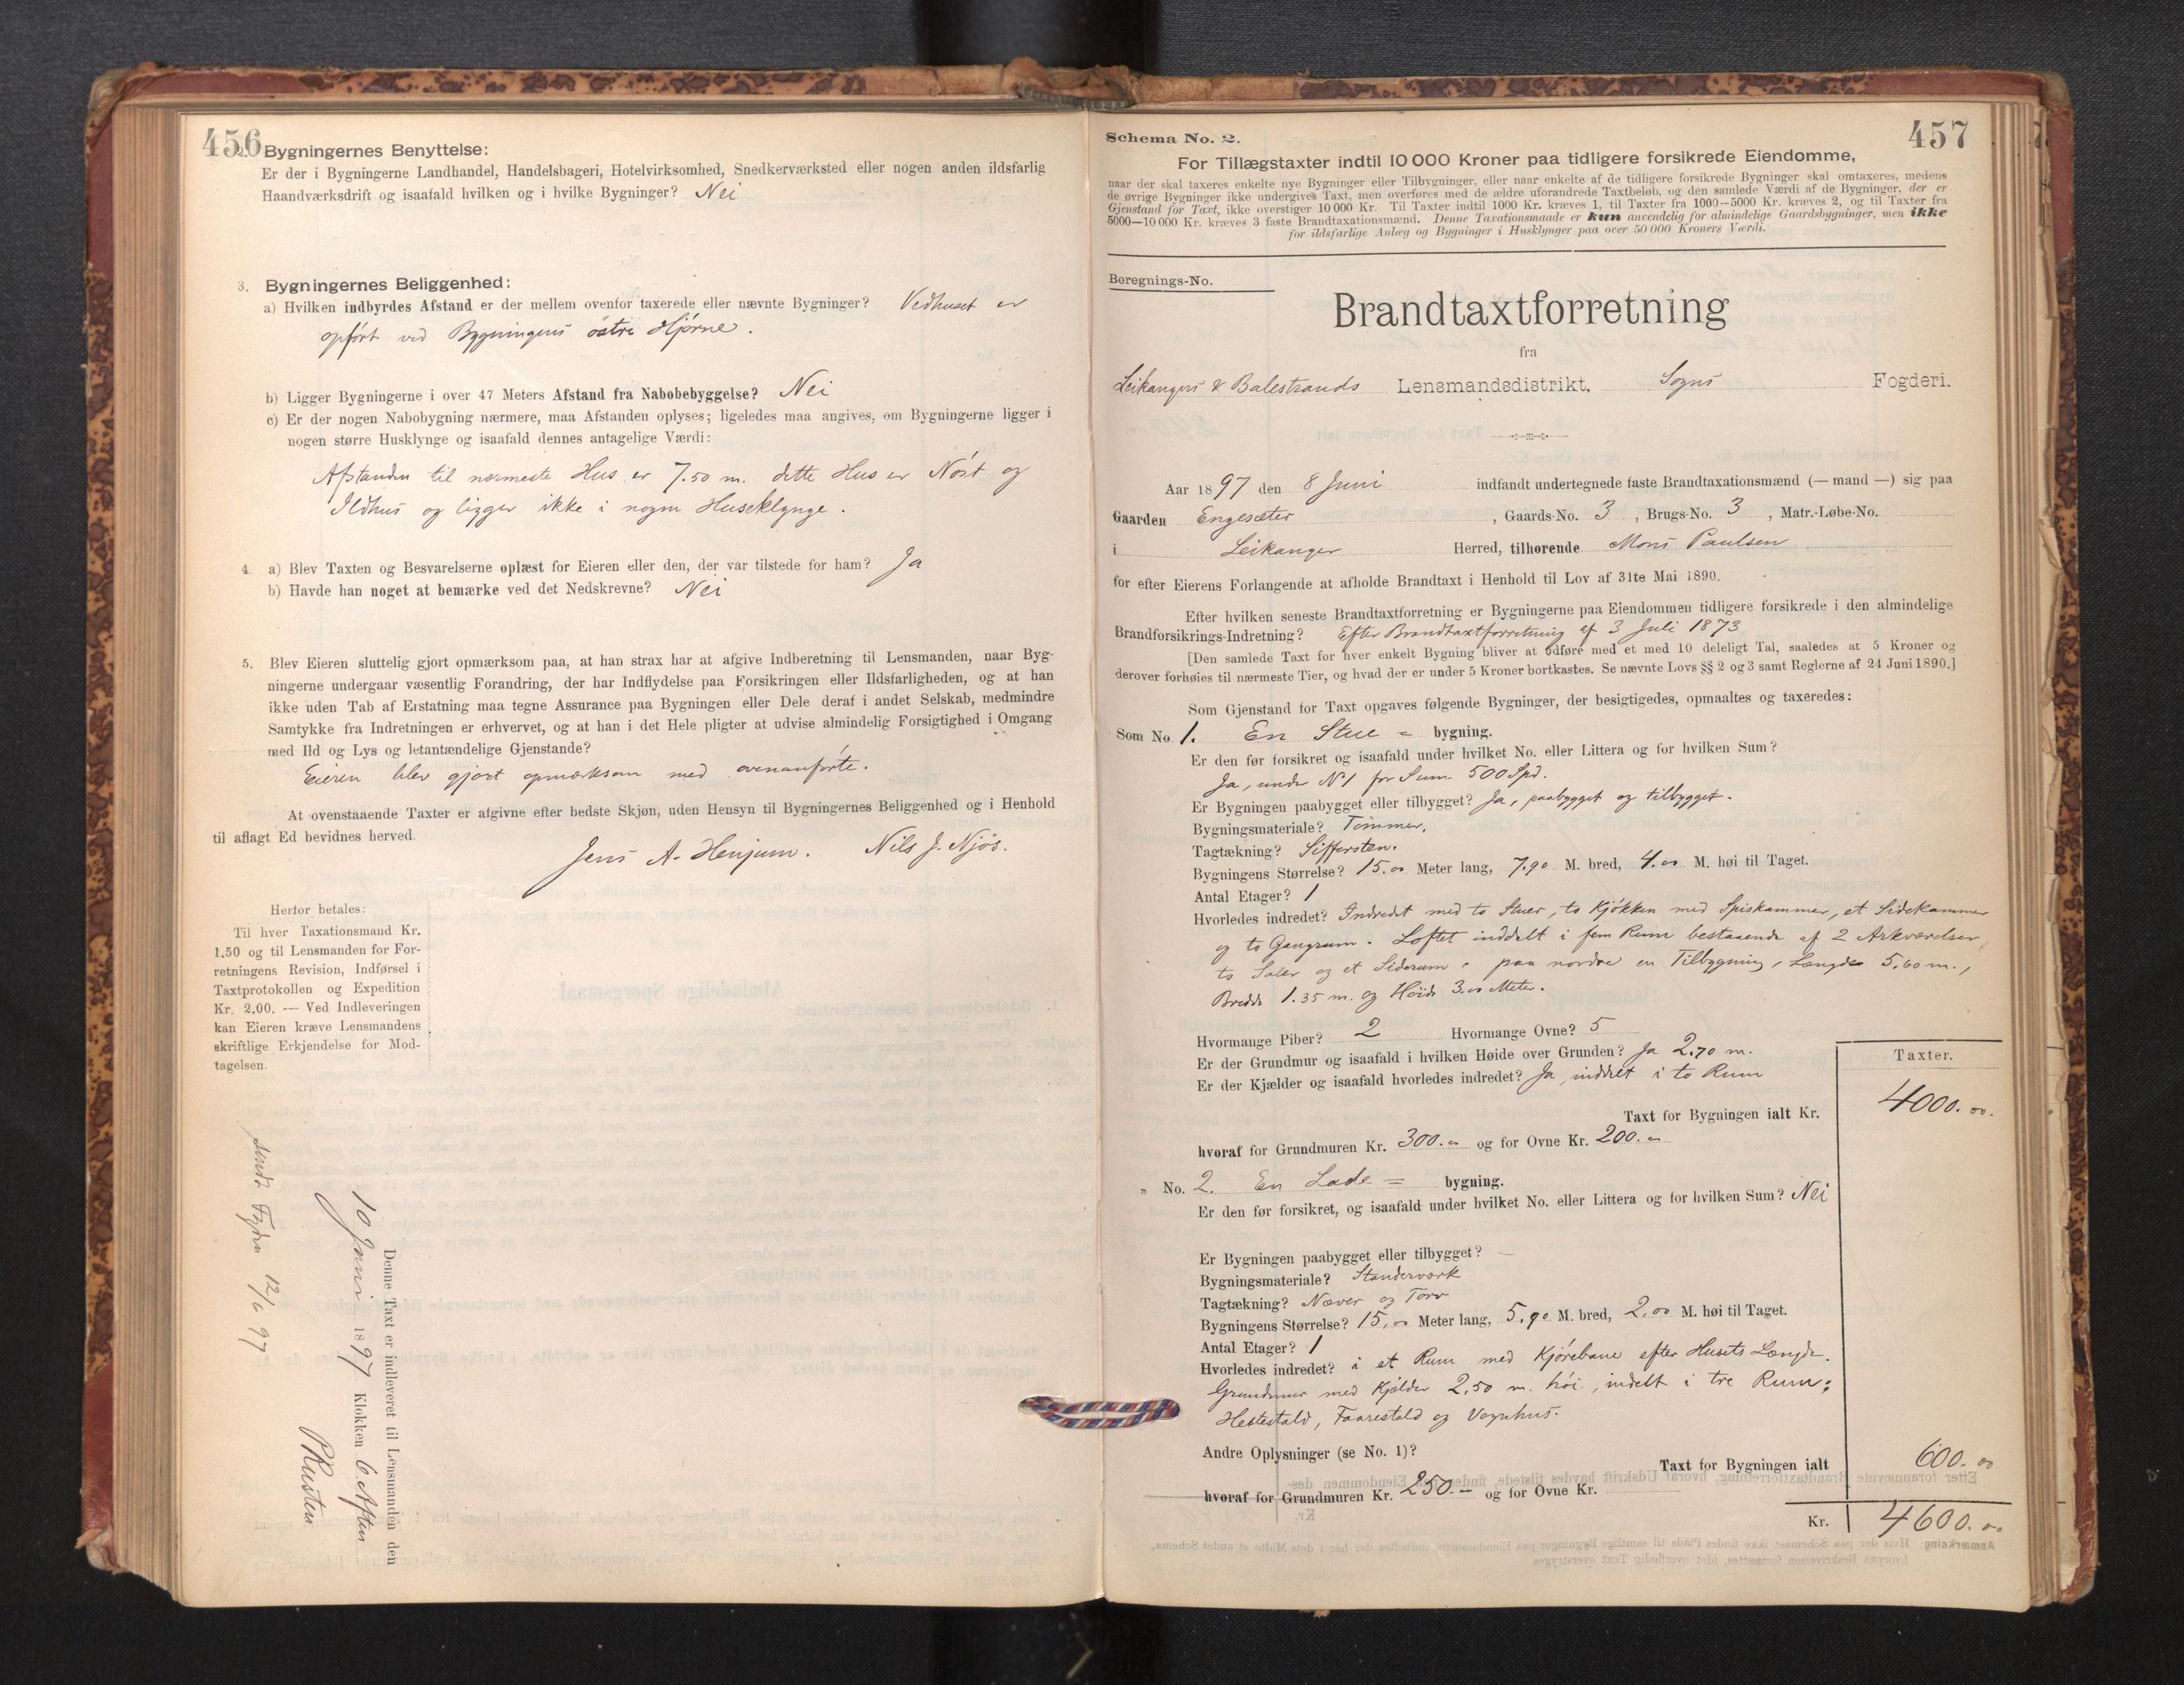 456
2. Bygningernes Benyttelse:
Er der i Bygningerne Landhandel, Handelsbageri, Hotelvirksomhed, Snedkerværksted eller nogen anden ildsfarlig
Haandværksdrift og isaafald hvilken og i hvilke Bygninger? Nei
3. Bygningernes Beliggenhed:
a) Hvilken indbyrdes Afstand er der mellem ovenfor taxerede eller nævnte Bygninger? Vedhuset er
opført ved Bygningens østre Hjørne.
b) Ligger Bygningerne i over 47 Meters Afstand fra Nabobebyggelse? Nei
c) Er der nogen Nabobygning nærmere, maa Afstanden oplyses; ligeledes maa angives, om Bygningerne ligger i
nogen større Husklynge og isaafald dennes antagelige Værdi:
Afstanden til nærmeste Hus er 7.50 m. dette Hus er Nøst og
Ildhus og ligger ikke i nogen Huseklynge.
4. a) Blev Taxten og Besvarelserne oplæst for Eieren eller den, der var tilstede for ham? Ja
b) Havde han noget at bemærke ved det Nedskrevne? Nei
5. Blev Eieren sluttelig gjort opmærksom paa, at han strax har at afgive Indberetning til Lensmanden, naar Byg-
ningerne undergaar væsentlig Forandring, der har Indflydelse paa Forsikringen eller Ildsfarligheden, og at han
ikke uden Tab af Erstatning maa tegne Assurance paa Bygningen eller Dele deraf i andet Selskab, medmindre
Samtykke fra Indretningen er erhvervet, og at han i det Hele pligter at udvise almindelig Forsigtighed i Omgang
med Ild og Lys og letantændelige Gjenstande?
Eieren blev gjort opmærksom med ovenanførte.
At ovenstaaende Taxter er afgivne efter bedste Skjøn, uden Hensyn til Bygningernes Beliggenhed og i Henhold
til aflagt Ed bevidnes herved.
Jens A. Henjum. Nils J. Njøs.
Herfor betales:
Til hver Taxationsmand Kr.
1.50 og til Lensmanden for For-
retningens Revision, Indførsel i
Taxtprotokollen og Expedition
Kr. 2.00. — Ved Indleveringen
kan Eieren kræve Lensmandens
skriftlige Erkjendelse for Mod-
tagelsen.
Denne Taxt er indleveret til Lensmanden den
10 Juni 1897 Klokken 6 Aften
sendt 12/6 97
457
Schema No. 2.
For Tillægstaxter indtil 10 000 Kroner paa tidligere forsikrede Eiendomme,
naar der skal taxeres enkelte nye Bygninger eller Tilbygninger, eller naar enkelte af de tidligere forsikrede Bygninger skal omtaxeres, medens
de øvrige Bygninger ikke undergives Taxt, men overføres med de ældre uforandrede Taxtbeløb, og den samlede Værdi af de Bygninger, der er
Gjenstand for Taxt, ikke overstiger 10 000 Kr. Til Taxter indtil 1000 Kr. kræves 1, til Taxter fra 1000—5000 Kr. kræves 2, og til Taxter fra
5000—10 000 Kr. kræves 3 faste Brandtaxationsmænd. Denne Taxationsmaade er kun anvendelig for almindelige Gaardsbygninger, men ikke
for ildsfarlige Anlæg og Bygninger i Husklynger paa over 50 000 Kroners Værdi.
Beregnings-No.
Brandtaxtforretning
fra
Leikangers & Balestrands Lensmandsdistrikt, Sogns Fogderi.
Aar 1897 den 8 Juni indfandt undertegnede faste Brandtaxationsmænd (— mand —) sig paa
Gaarden Engesæter, Gaards-No. 3, Brugs-No. 3, Matr.-Løbe-No.
i Leikanger Herred, tilhørende Mons Paulsen
for efter Eierens Forlangende at afholde Brandtaxt i Henhold til Lov af 31te Mai 1890.
Efter hvilken seneste Brandtaxtforretning er Bygningerne paa Eiendommen tidligere forsikrede i den almindelige
Brandforsikrings-Indretning? Efter Brandtaxtforretning af 3 Juli 1873
[Den samlede Taxt for hver enkelt Bygning bliver at udføre med et med 10 deleligt Tal, saaledes at 5 Kroner og
derover forhøies til nærmeste Tier, og hvad der er under 5 Kroner bortkastes. Se nævnte Lovs §§ 2 og 3 samt Reglerne af 24 Juni 1890.]
Som Gjenstand for Taxt opgaves følgende Bygninger, der besigtigedes, opmaaltes og taxeredes:
Som No. 1. En Stue = bygning.
Er den før forsikret og isaafald under hvilket No. eller Littera og for hvilken Sum?
Ja, under N 1 for Sum 500 Spd.
Er Bygningen paabygget eller tilbygget? Ja, paabygget og tilbygget.
Bygningsmateriale? Tømmer.
Tagtækning? Siffersten.
Bygningens Størrelse? 15.00 Meter lang, 7.90 M. bred, 4.00 M. høi til Taget.
Antal Etager? 1
Hvorledes indredet? Indredet med to Stuer, to Kjøkken med Spiskammer, et Sidekammer
og to Gangrum. Loftet inddelt i fem Rum bestaaende af 2 Arkværelser,
to Saler og et Siderum, paa nordre en Tilbygning, Længde 5.60 m.,
Bredde 1.35 m. og Høide 3.00 Meter.
Hvormange Piber? 2 Hvormange Ovne? 5
Er der Grundmur og isaafald i hvilken Høide over Grunden? Ja 2.70 m.
Er der Kjælder og isaafald hvorledes indredet? Ja, inddelt i to Rum
Taxter.
Taxt for Bygningen ialt Kr. 4000.00.
hvoraf for Grundmuren Kr. 300.- og for Ovne Kr. 200.-
" No. 2. En Lade = bygning.
Er den før forsikret, og isaafald under hvilket No. eller Littera og for hvilken Sum? Nei
Er Bygningen paabygget eller tilbygget? —
Bygningsmateriale? Standerværk
Tagtækning? Næver og Torv
Bygningens Størrelse? 15.00 Meter lang, 5.90 M. bred, 2.00 M. høi til Taget.
Antal Etager? 1
Hvorledes indredet? i et Rum med Kjørebane efter Husets Længde.
Grundmur med Kjelder 2.50 m. høi., indelt i tre Rum:
Hestestald, Faarestald og Vognhus.
Andre Oplysninger (se No. 1)?
Taxt for Bygningen ialt 600.00
hvoraf for Grundmuren Kr. 250.- og for Ovne Kr.
Kr. 4600.00